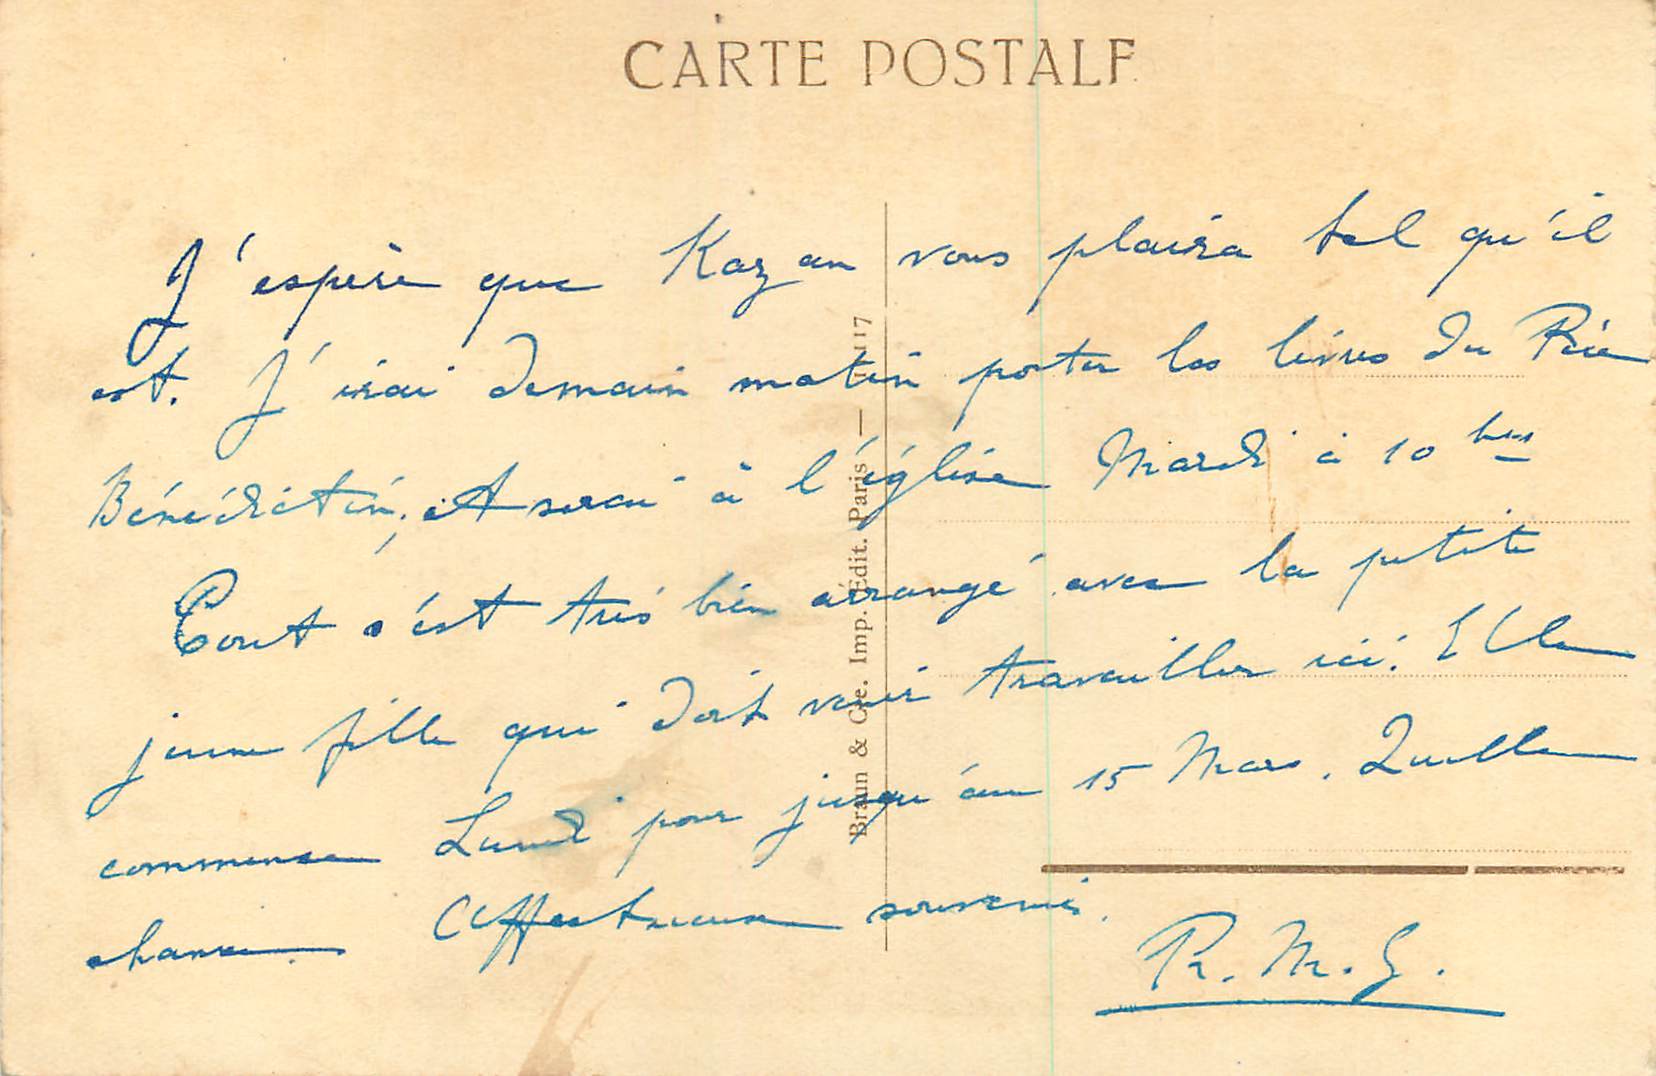 CARTE POSTALE
J'espère que Kazan vous plaira tel qu'il
est. J'irai demain matin porter les livres du Père
Bénédictin, et serai à l'église Mardi à 10 hes
Tout s'est très bien arrangé avec la petite
jeune fille qui doit venir travailler ici. Elle
commence Lundi pour jusqu'au 15 Mars. Quelle
chance. Affectueux souvenir.
R. M. G.
Braun & Cie. Imp. Edit. Paris — 11117